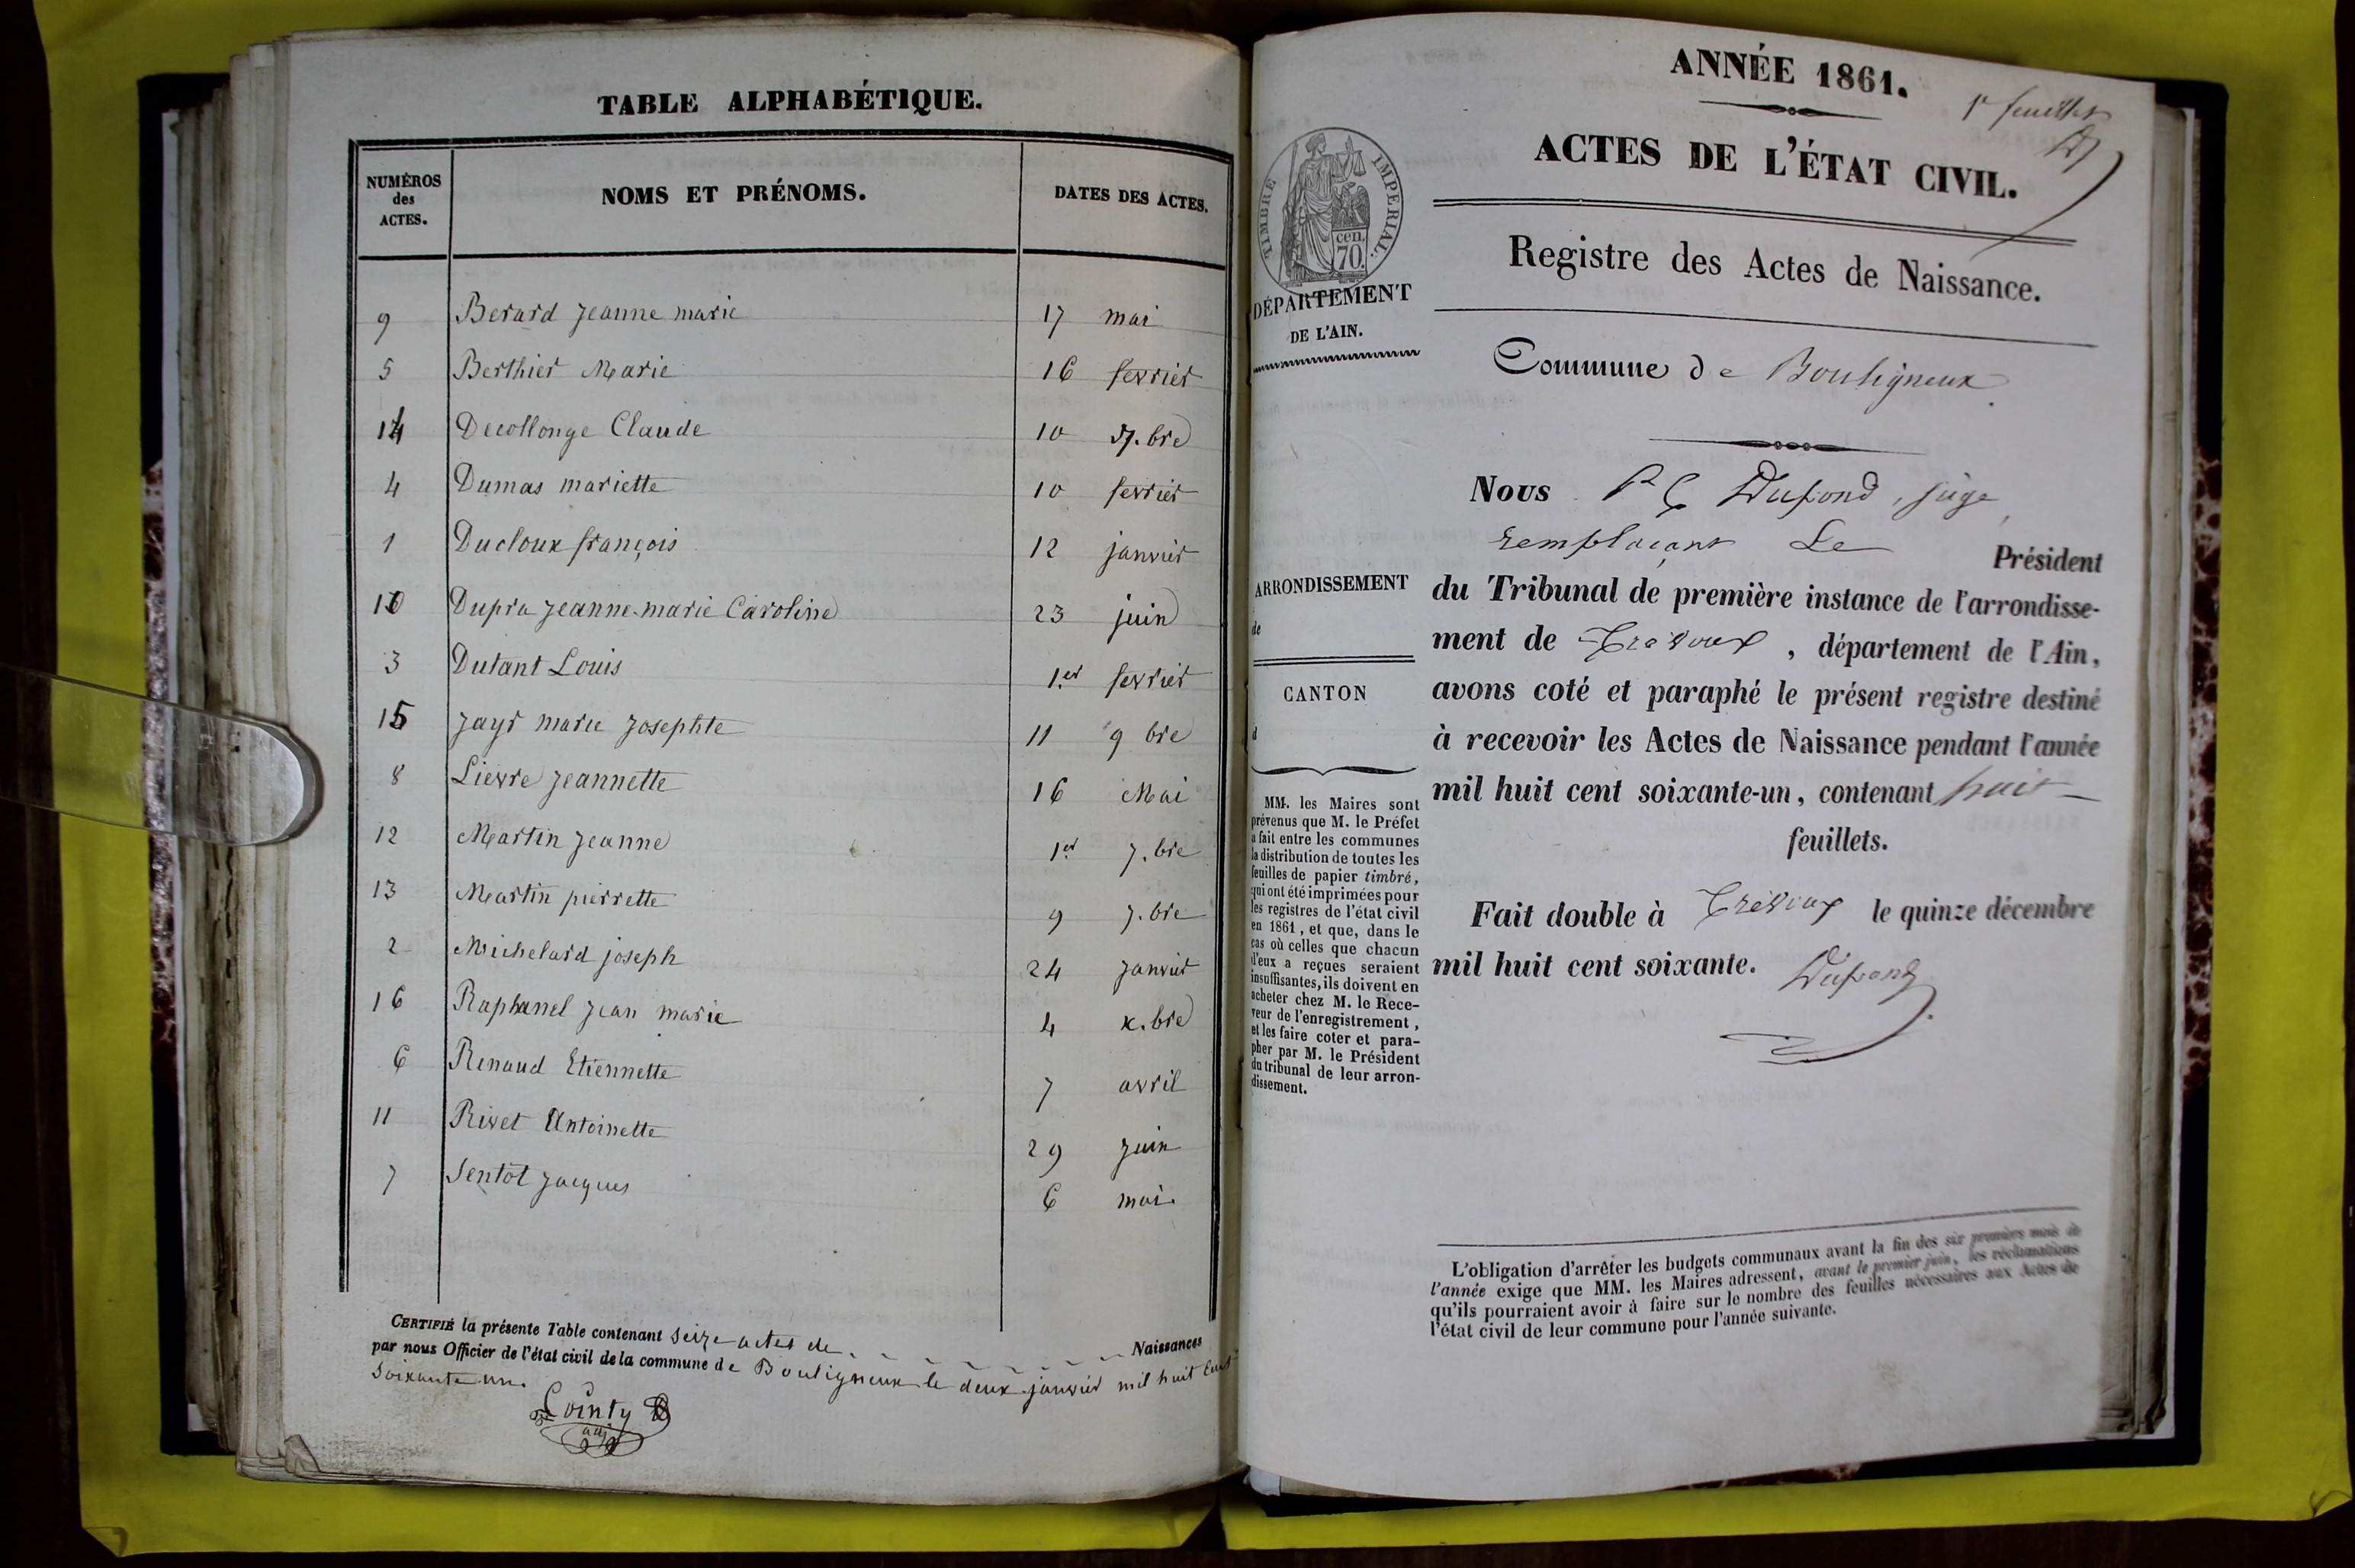 TABLE ALPHABÉTIQUE.
NUMÉROS des ACTES. NOMS ET PRÉNOMS. DATES DES ACTES.
9 Berard Jeanne marie 17 mai
5 Berthier Marie 16 fevrier
14 Decollonge Claude 10 7.bre
4 Dumas mariette 10 fevrier
1 Ducloux françois 12 janvier
10 Dupra Jeanne-marie Caroline 23 juin
3 Dutant Louis 1.er fevrier
15 Jayr marie Josephte 11 9 bre
8 Lievre Jeannette 16 Mai
12 Martin Jeanne 1er 7.bre
13 Martin pierrette 9 7.bre
2 Michelard joseph 24 Janvier
16 Raphanel Jean marie 4 x.bre
6 Renaud Etiennette 7 avril
11 Rivet Antoinette 29 Juin
7 Sentot Jacques 6 mai.
CERTIFIÉ la présente Table contenant Seize actes de Naissances
par nous Officier de l'état civil de la commune de Bouligneux le deux janvier mil huit Cent
Soixante un.
Cointy
adj
ANNÉE 1861.
1er feuillet
ACTES DE L'ÉTAT CIVIL.
Registre des Actes de Naissance.
TIMBRE IMPERIAL.
cen.
70.
DÉPARTEMENT
DE L'AIN.
Commune de Bouligneux
Nous P C Dupond, juge
remplaçant Le Président
du Tribunal de première instance de l'arrondisse-
ment de Trévoux, département de l'Ain,
avons coté et paraphé le présent registre destiné
à recevoir les Actes de Naissance pendant l'année
mil huit cent soixante-un, contenant huit
feuillets.
Fait double à Trévoux le quinze décembre
mil huit cent soixante. Dupond
ARRONDISSEMENT
de
CANTON
d
MM. les Maires sont
prévenus que M. le Préfet
a fait entre les communes
la distribution de toutes les
feuilles de papier timbré,
qui ont été imprimées pour
les registres de l'état civil
en 1861, et que, dans le
cas où celles que chacun
d'eux a reçues seraient
insuffisantes, ils doivent en
acheter chez M. le Rece-
veur de l'enregistrement,
et les faire coter et para-
pher par M. le Président
du tribunal de leur arron-
dissement.
L'obligation d'arrêter les budgets communaux avant la fin des six premiers mois de
l'année exige que MM. les Maires adressent, avant le premier juin, les réclamations
qu'ils pourraient avoir à faire sur le nombre des feuilles nécessaires aux Actes de
l'état civil de leur commune pour l'année suivante.